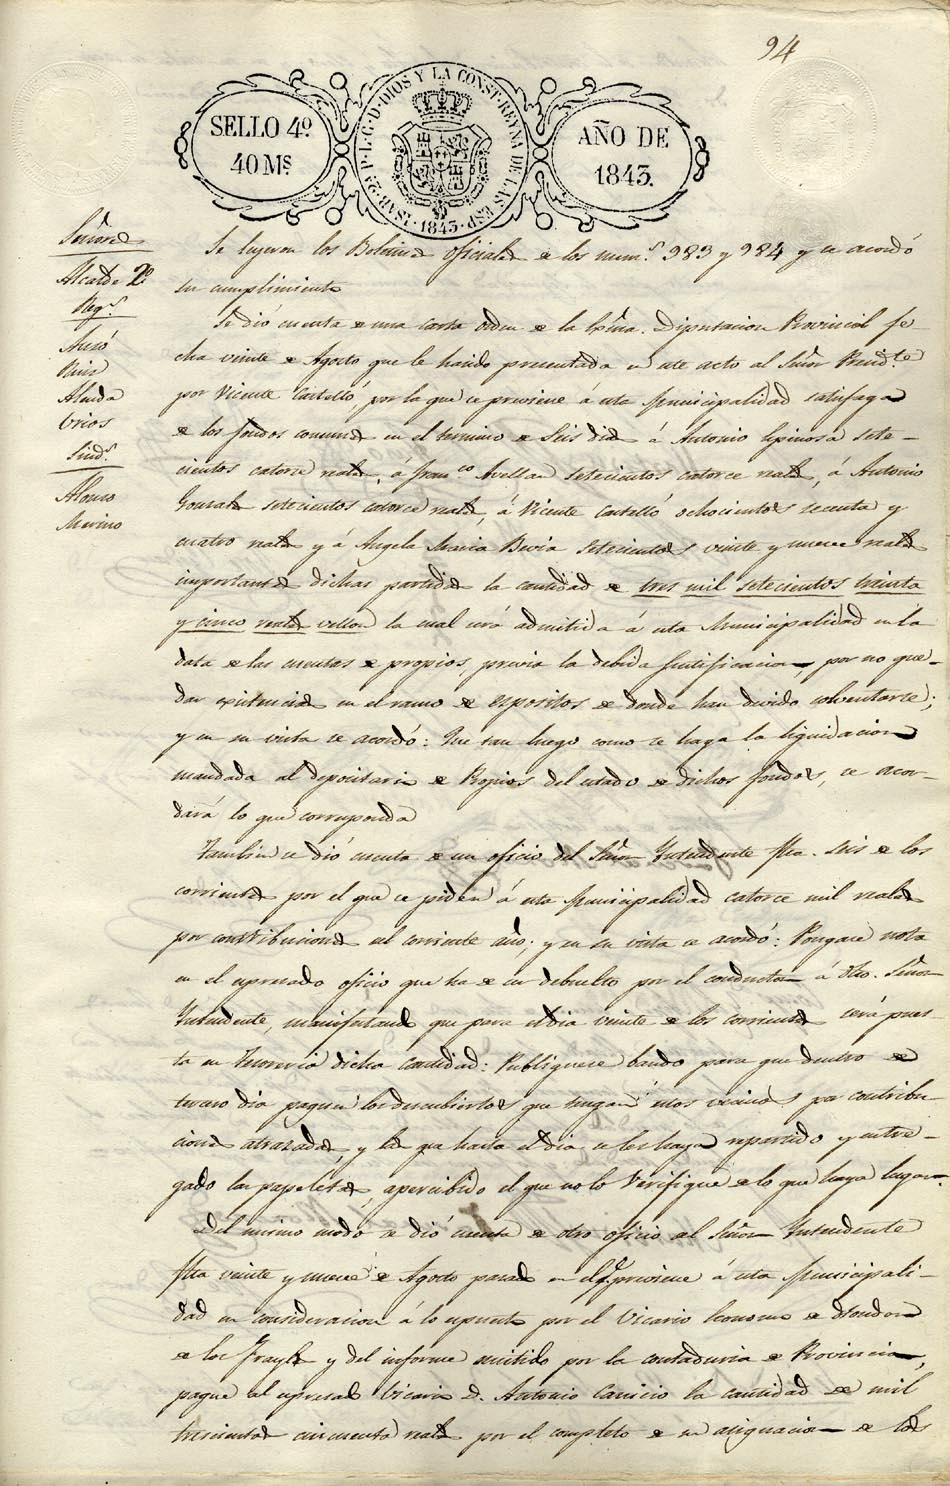 94
SELLO 4º
40 Ms.
ISAB. 2ª P. L. G. D. DIOS Y LA CONST. REYNA DE LAS ESP. 1843
AÑO DE
1843.
Señores
Alcalde 2º
Reg.s
Auró
Ruiz
Aluda
Vrios
Sind.s
Alonso
Merino
Se leyeron los Boletines oficiales de los num.s 983 y 984 y se acordó
su cumplimiento
Se dió cuenta de una carta orden de la Exma. Diputacion Provincial fe-
cha veinte de Agosto que le ha sido presentada en este acto al Señor Presid.te
por Vicente Castelló, por la que se previene á esta Municipalidad satisfaga
de los fondos comunes en el termino de seis dias á Antonio Espinosa sete-
cientos catorce reales, á Fran.co Avellan setecientos catorce reales, á Antonio
Gonzalez setecientos catorce reales, á Vicente Castelló ochocientos sesenta y
cuatro reales y á Angela Maria Bevia setecientos veinte y nueve reales
importantes dichas partidas la cantidad de tres mil setecientos treinta
y cinco reales vellon la cual será admitida á esta Municipalidad en la
data de las cuentas de propios, previa la debida justificacion, por no que-
dar existencias en el ramo de espositos de donde han devido solventarse;
y en su vista se acordó: Que tan luego como se haga la liquidacion
mandada al depositario de Propios del estado de dichos fondos, se acor-
dará lo que corresponda
Tambien se dió cuenta de un oficio del Señor Intendente fha. seis de los
corrientes por el que se piden á esta Municipalidad catorce mil reales
por contribuciones del corriente año; y en su vista se acordó: Pongase nota
en el espresado oficio que ha de ser debuelto por el conductor á dho. Señor
Intendente, manifestando que para el dia veinte de los corrientes será pues-
ta en Tesoreria dicha cantidad: Publiquese bando para que dentro de
tercero dia paguen los descubiertos que tengan estos vecinos por contribu-
ciones atrazadas, y las que hasta el dia se les haya repartido y entre-
gado las papeletas, apercibido el que no lo verifique de lo que haya lugar.
Del mismo modo se dió cuenta de otro oficio del Señor Intendente
fha veinte y nueve de Agosto pasado en el q.e previene á esta Municipali-
dad en consideracion á lo espuesto por el Vicario Economo de
de los Frayles y del informe emitido por la contaduria de Provincia,
pague al espresado Vicario D. Antonio Canicio la cantidad de mil
trescientos cincuenta reales por el completo de su asignacion de los